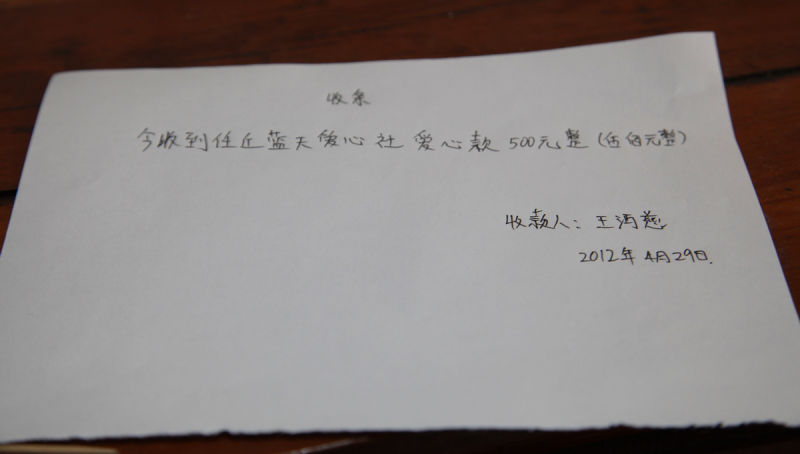 收条
今收到任丘蓝天爱心社爱心款500元整(伍佰元整)
收款人: 王
2012年4月29日.